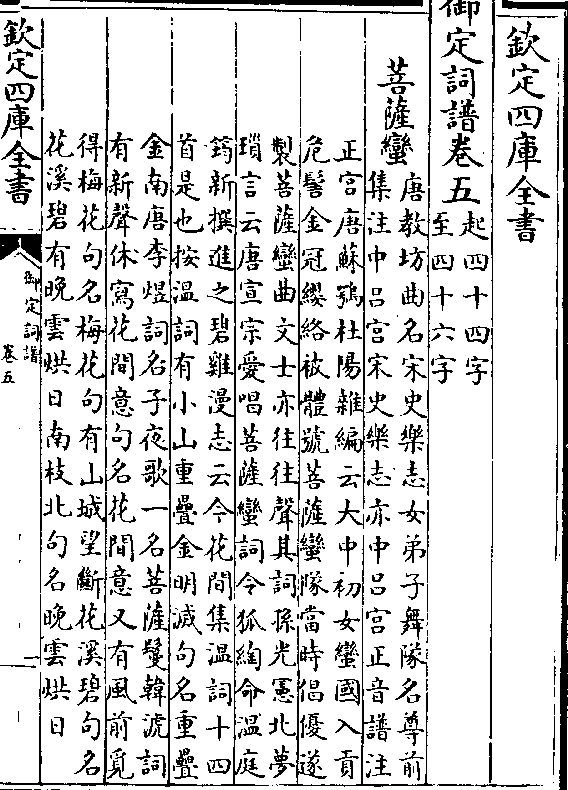 欽定四庫全書
御定詞譜卷五
起四十四字
至四十六字
菩薩蠻
唐教坊曲名宋史樂志女弟子舞隊名尊前
集注中呂宮宋史樂志亦中呂宮正音譜注
正宮唐蘇鶚杜陽雜編云大中初女蠻國入貢
危髻金冠纓絡被體號菩薩蠻隊當時倡優遂
製菩薩蠻曲文士亦往往聲其詞孫光憲北夢
瑣言云唐宣宗愛唱菩薩蠻詞令狐綯命温庭
筠新撰進之碧雞漫志云今花間集温詞十四
首是也按温詞有小山重疊金明滅句名重疊
金南唐李煜詞名子夜歌一名菩薩鬘韓淲詞
有新聲休寫花間意句名花間意又有風前覓
得梅花句名梅花句有山城望斷花溪碧句名
花溪碧有晚雲烘日南枝北句名晚雲烘日
欽定四庫全書
御定詞譜
卷五
一